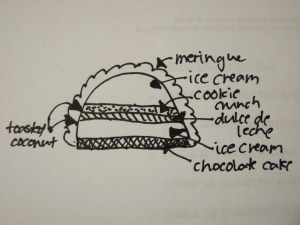 meringue
ice cream
cookie
crunch
dulce de
leche
ice cream
chocolate cake
toasted
coconut